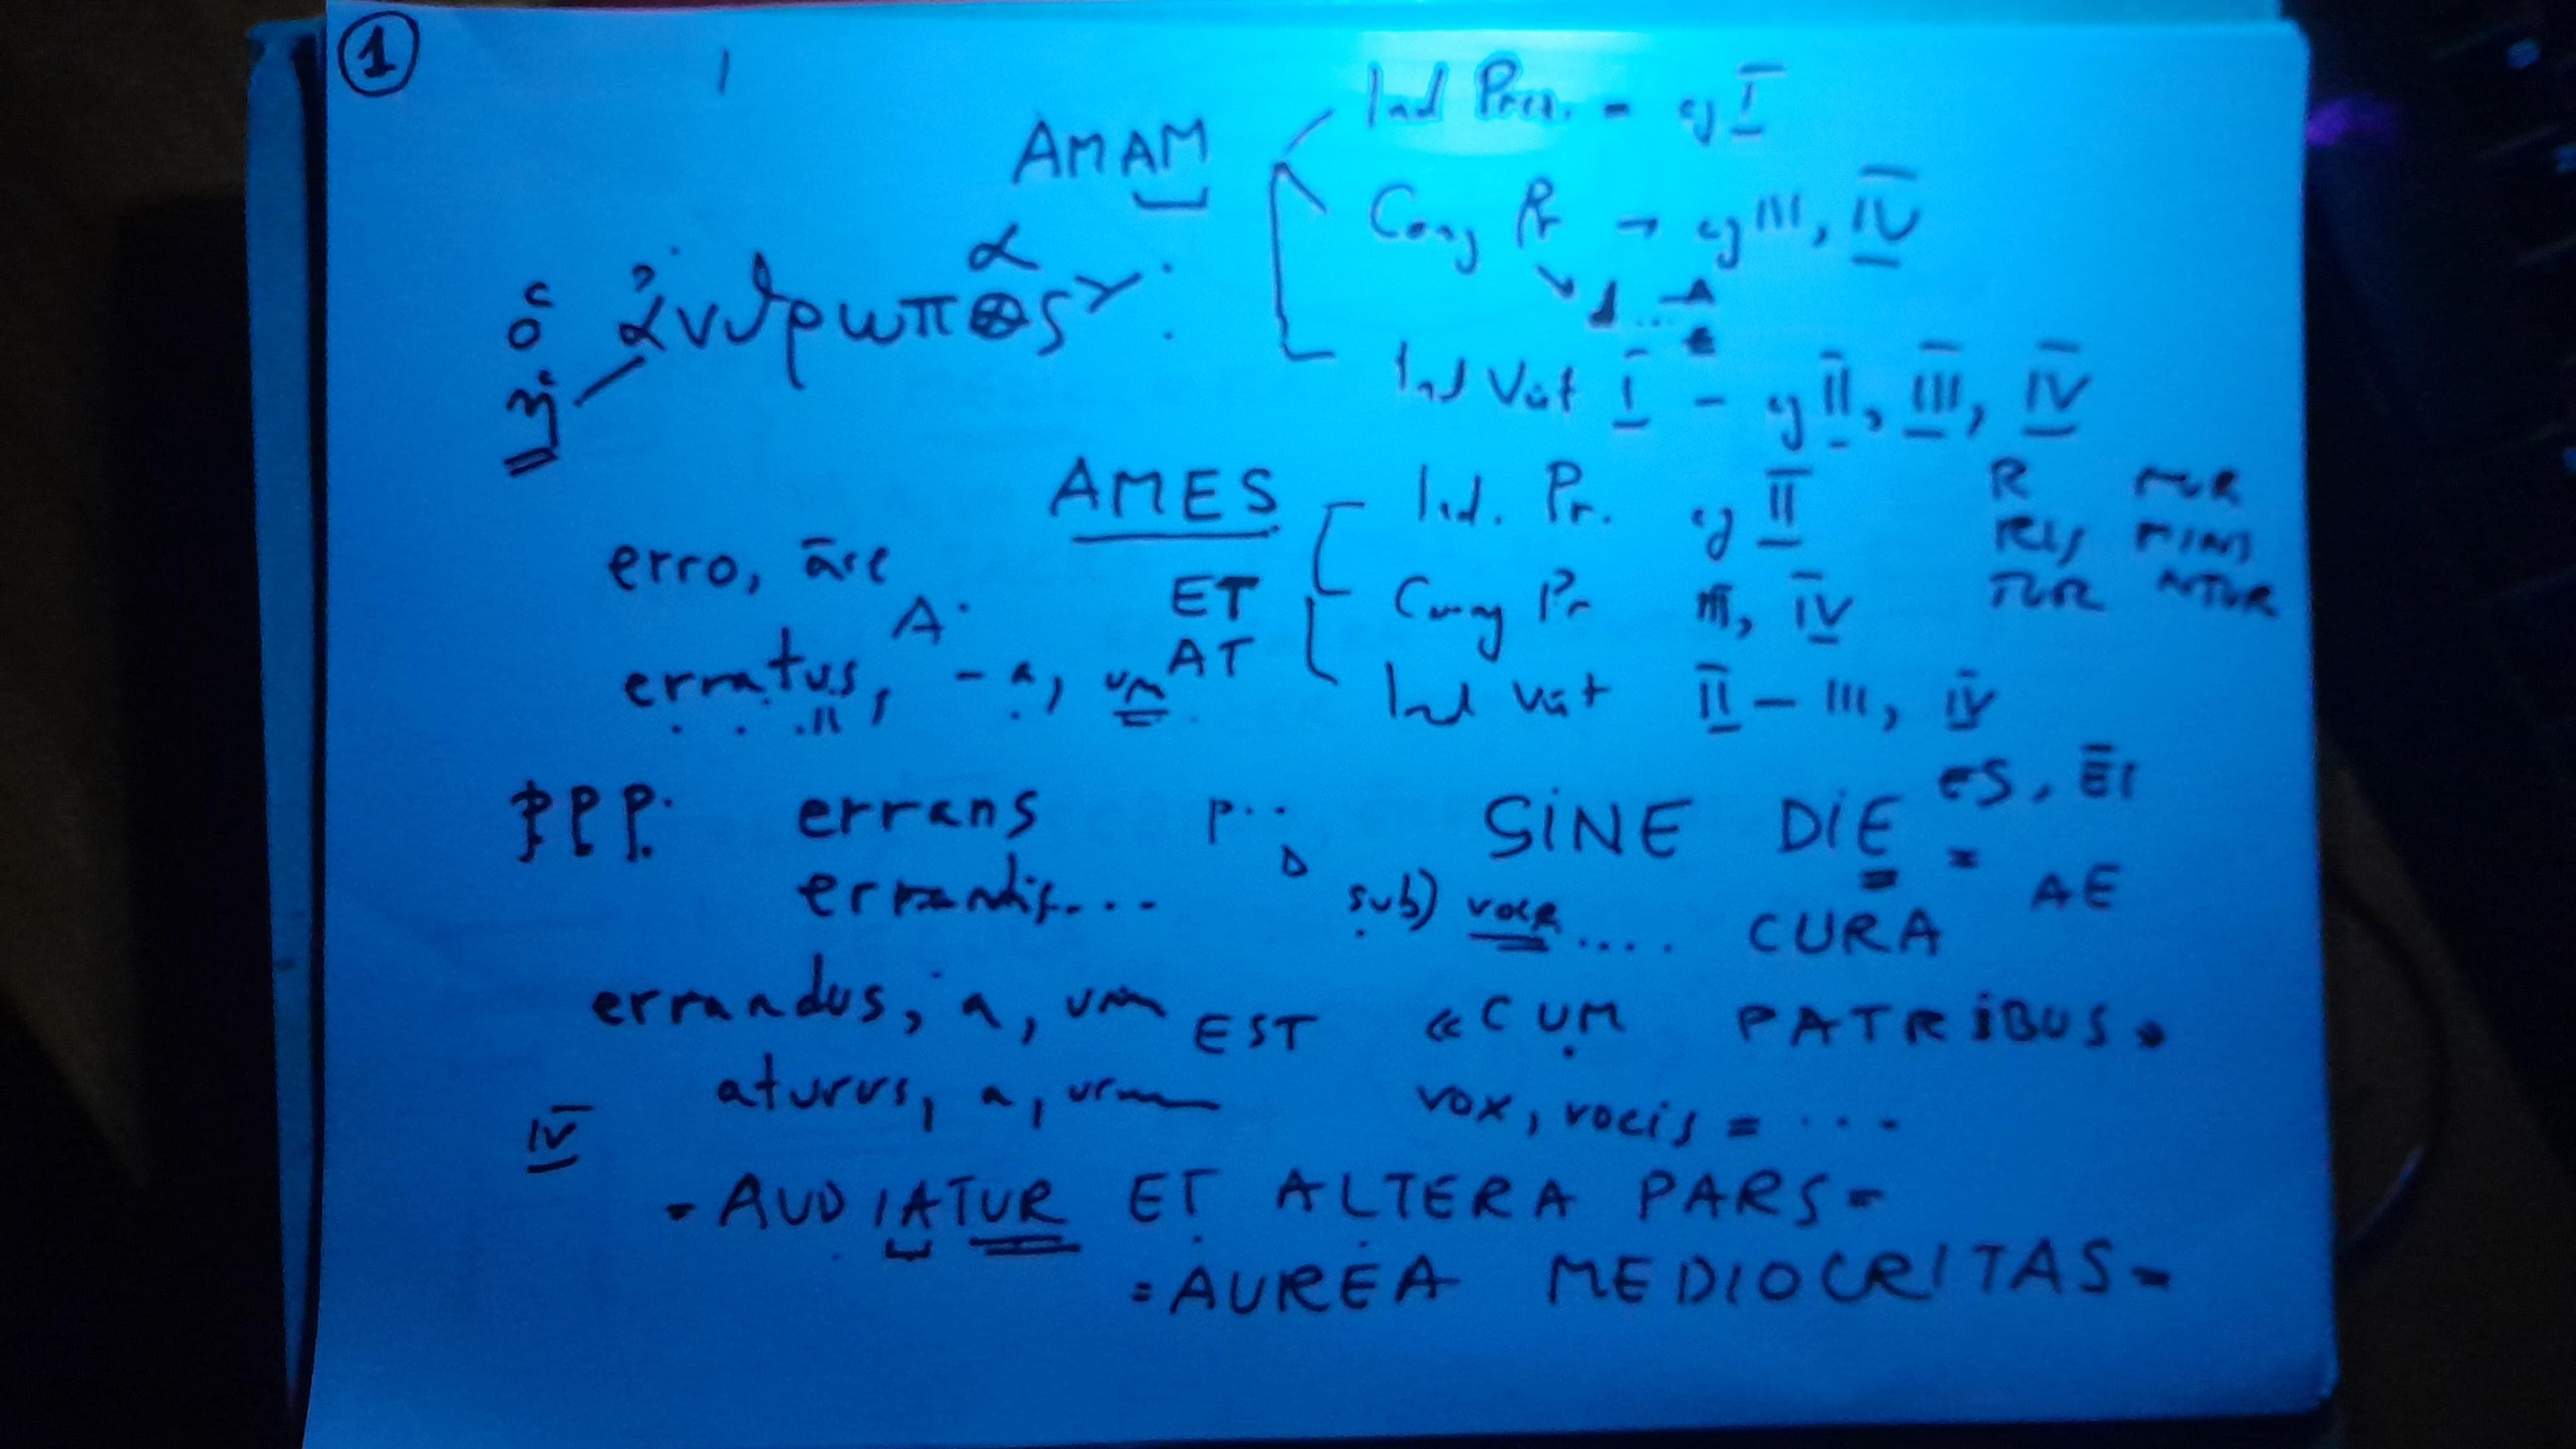 1
AMAM
Ind Pres. - cj I
Conj Pr → cj III, IV
A
E
α
ὁ ἄνθρωπος
Ind Viit I - cj II, III, IV
AMES
Ind. Pr. cj II
R MUR
RIS MINI
TUR NTUR
erro, āre
ET
Conj Pr III, IV
A
erratus, -a, um
AT
Ind Viit II - III, IV
PPP. errans
SINE DIE es, ĒI
errantis...
sub) voce ....
CURA AE
errandus, a, um EST
«CUM PATRIBUS»
aturus, a, um
vox, vocis = ...
IV
- AUDIATUR ET ALTERA PARS =
= AUREA MEDIOCRITAS =